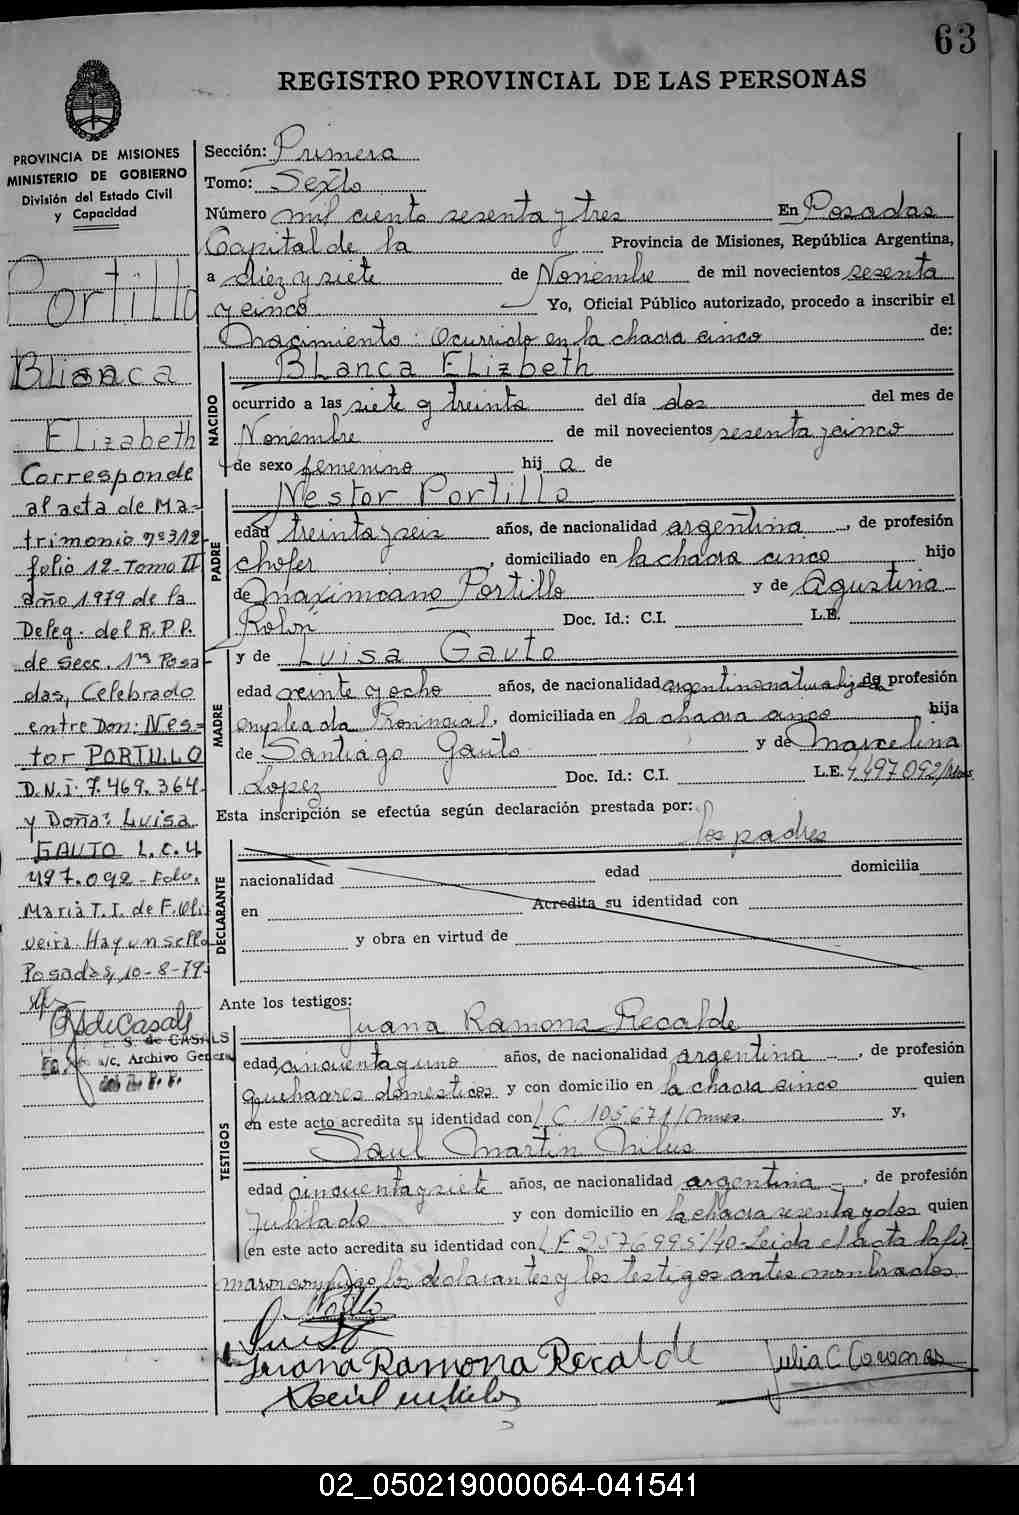 63
REGISTRO PROVINCIAL DE LAS PERSONAS
PROVINCIA DE MISIONES
MINISTERIO DE GOBIERNO
División del Estado Civil
y Capacidad
Portillo
Blanca
Elizabeth
Corresponde
al acta de Ma-
trimonio nº 312
folio 12-Tomo II
año 1979 de la
Deleg. del R.P.P.
de Secc. 1ra Posa-
das, Celebrado
entre Don: Nes-
tor PORTILLO
D.N.I. 7.469.364
y Doña: Luisa
GAUTO L.C.4
497.092-Fdo.
Maria T. I. de F. Oli
veira. Hay un sello
Posadas, 10-8-79-
S. de CASALS
a/c. Archivo General
del R. P. P.
Sección: Primera
Tomo: Sexto
Número mil ciento sesenta y tres En Posadas
Capital de la Provincia de Misiones, República Argentina,
a diez y siete de Noviembre de mil novecientos sesenta
y cinco Yo, Oficial Público autorizado, procedo a inscribir el
Nacimiento: Ocurrido en la chacra cinco de:
NACIDO
Blanca Elizbeth
ocurrido a las siete y treinta del día dos del mes de
Noviembre de mil novecientos sesenta y cinco
de sexo femenino hij a de
PADRE
Nestor Portillo
edad treinta y seis años, de nacionalidad argentina -, de profesión
chofer, domiciliado en la chacra cinco hijo
de Maximiano Portillo y de Agustina
Rolón Doc. Id.: C.I. L.E.
MADRE
y de Luisa Gauto
edad veinte y ocho años, de nacionalidad argentina naturalizada profesión
empleada Provincial, domiciliada en la chacra cinco hija
de Santiago Gauto y de Marcelina
Lopez Doc. Id.: C.I. L.E. 4.497.092/
Esta inscripción se efectúa según declaración prestada por:
los padres
DECLARANTE
nacionalidad edad domicilia
en Acredita su identidad con
y obra en virtud de
Ante los testigos:
TESTIGOS
Juana Ramona Recalde
edad cincuenta y uno años, de nacionalidad argentina -, de profesión
quehaceres domesticos y con domicilio en la chacra cinco quien
en este acto acredita su identidad con L C. 105.671/ y,
Saul Martin
edad cincuenta y siete años, de nacionalidad argentina -, de profesión
Jubilado y con domicilio en la chacra sesenta y dos quien
en este acto acredita su identidad con L E 2576995/40-Leida el acta la fir
maron conmigo los declarantes y los testigos antes nombrados.
Juana Ramona Recalde
Julia C
02_050219000064-041541